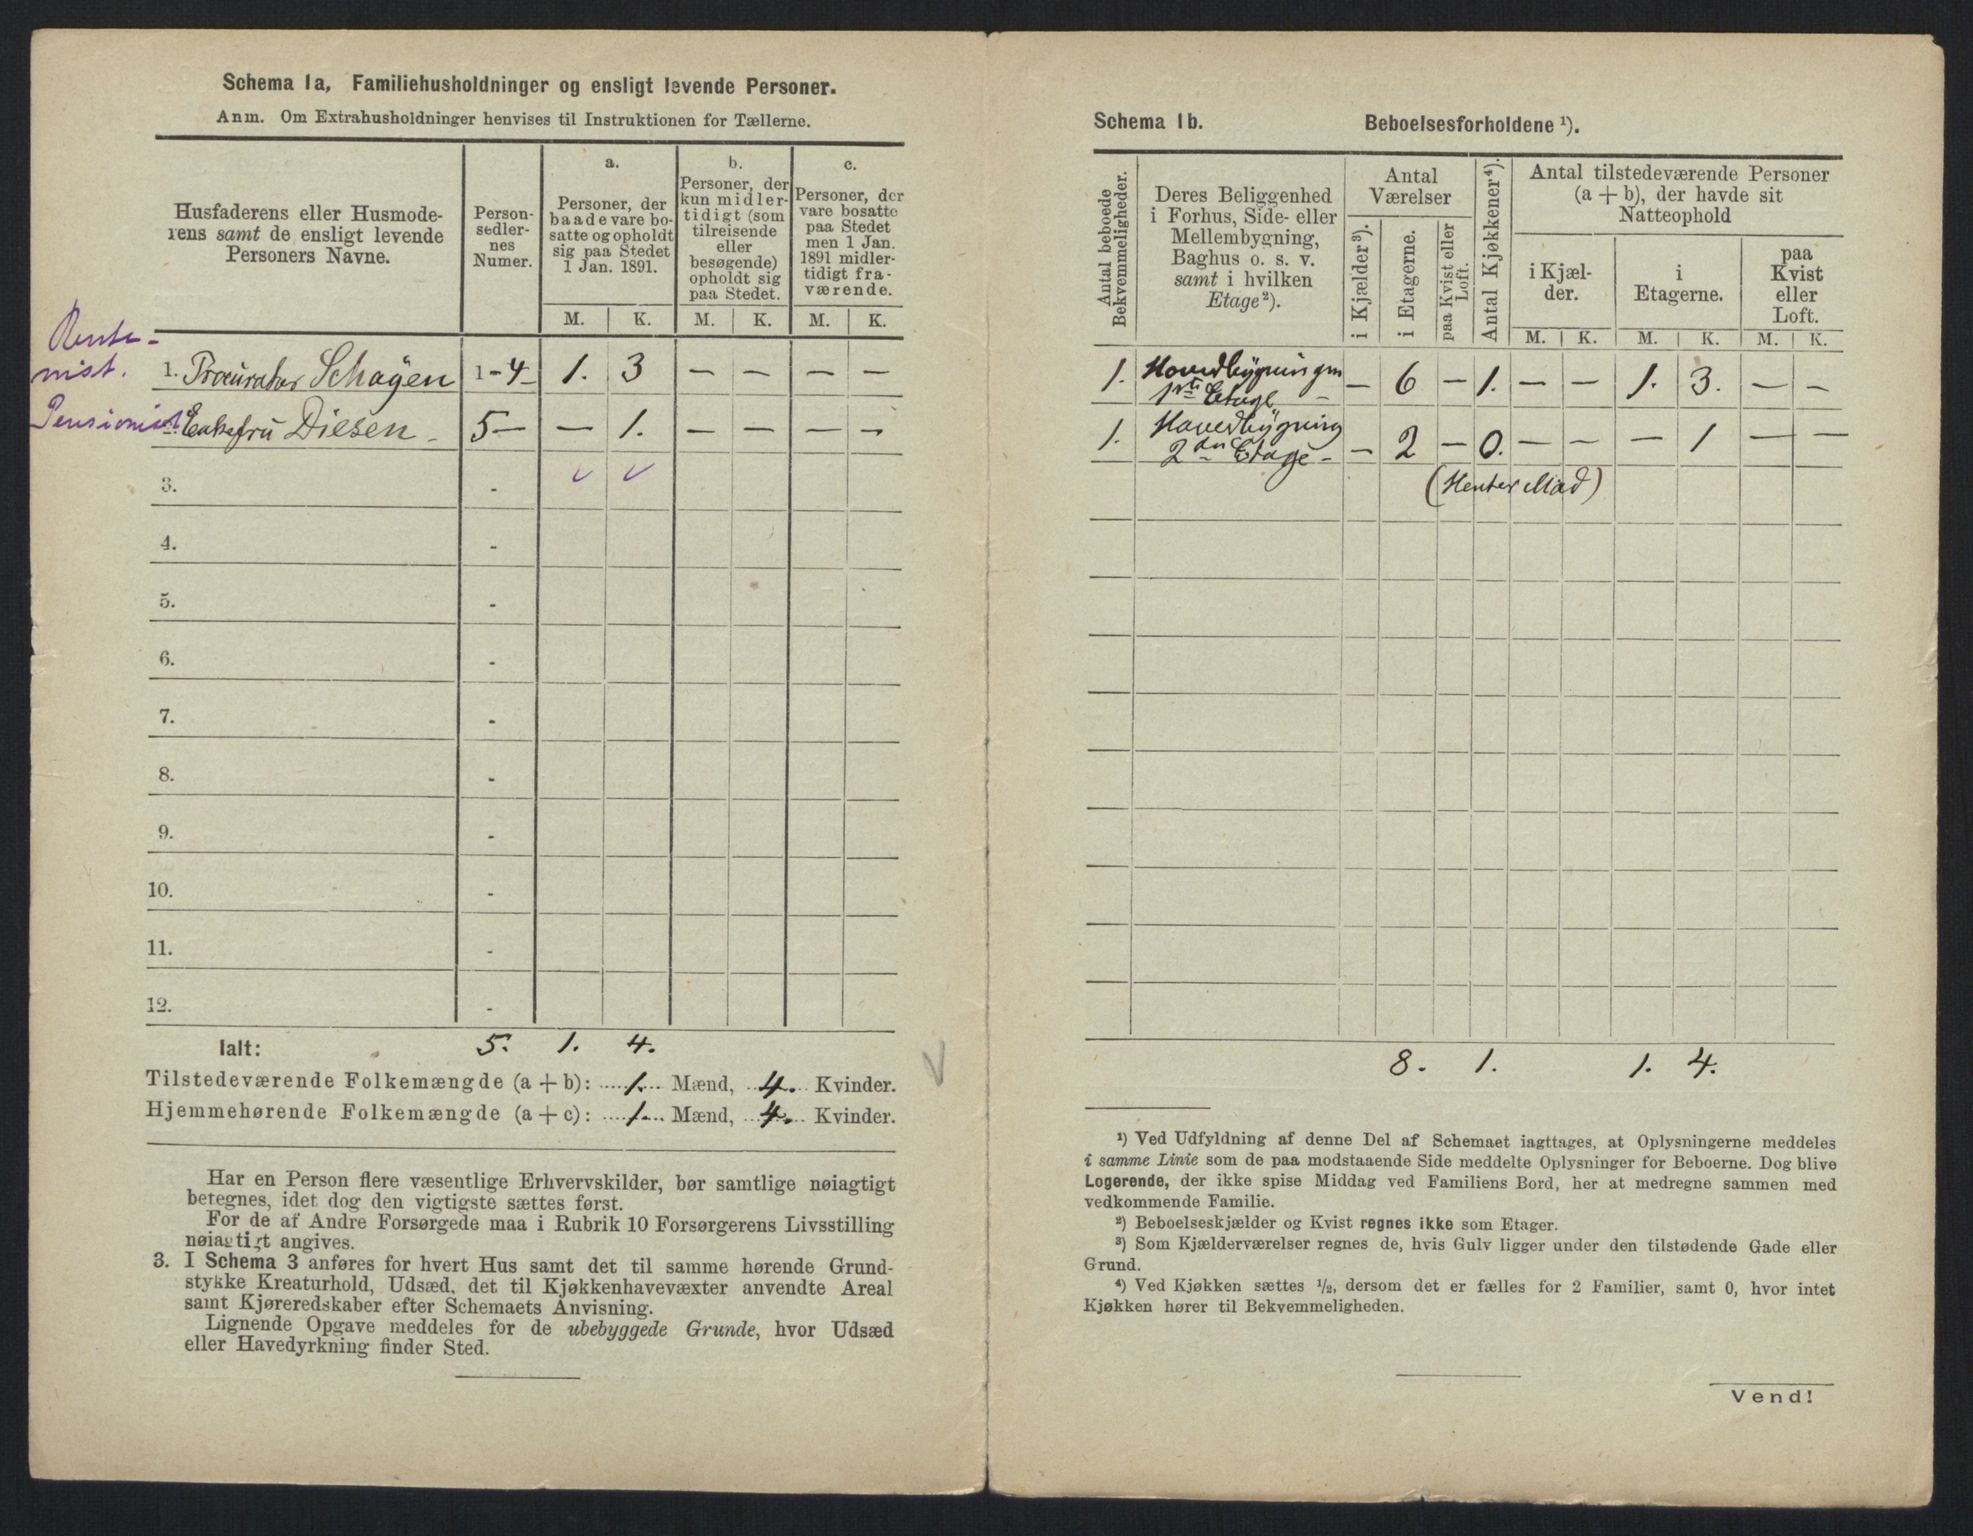 Schema 1a, Familiehusholdninger og ensligt levende Personer.
Anm. Om Extrahusholdninger henvises til Instruktionen for Tællerne.
Husfaderens eller Husmode-
rens samt de ensligt levende
Personers Navne.
Person-
sedler-
nes
Numer.
a.
Personer, der
baade vare bo-
satte og opholdt
sig paa Stedet
1 Jan. 1891.
b.
Personer, der
kun midler-
tidigt (som
tilreisende
eller
besøgende)
opholdt sig
paa Stedet.
c.
Personer, der
vare bosatte
paa Stedet
men 1 Jan.
1891 midler-
tidigt fra-
værende.
M. K. M. K. M. K.
Rente-
nist.
1. Procurator Schøyen 1-4 1. 3 — — — —
Pensionist Enkefru Diesen - 5 — — 1. — — — —
3. -
4. -
5. -
6. -
7. -
8. -
9. -
10. -
11. -
12. -
Ialt: 5. 1. 4.
Tilstedeværende Folkemængde (a + b): 1. Mænd, 4. Kvinder.
Hjemmehørende Folkemængde (a + c): 1. Mænd, 4. Kvinder.
Har en Person flere væsentlige Erhvervskilder, bør samtlige nøiagtigt
betegnes, idet dog den vigtigste sættes først.
For de af Andre Forsørgede maa i Rubrik 10 Forsørgerens Livsstilling
nøiagtigt angives.
3. I Schema 3 anføres for hvert Hus samt det til samme hørende Grund-
stykke Kreaturhold, Udsæd, det til Kjøkkenhavevæxter anvendte Areal
samt Kjøreredskaber efter Schemaets Anvisning.
Lignende Opgave meddeles for de ubebyggede Grunde, hvor Udsæd
eller Havedyrkning finder Sted.
Schema 1b. Beboelsesforholdene ¹).
Antal beboede
Bekvemmeligheder.
Deres Beliggenhed
i Forhus, Side- eller
Mellembygning,
Baghus o. s. v.
samt i hvilken
Etage ²).
Antal
Værelser
i Kjælder ³).
i Etagerne.
paa Kvist eller
Loft.
Antal Kjøkkener ⁴).
Antal tilstedeværende Personer
(a + b), der havde sit
Natteophold
i Kjæl-
der.
i
Etagerne.
paa
Kvist
eller
Loft.
M. K. M. K. M. K.
1. Hovedbygningen — 6 — 1. — — 1. 3. — —
1ste Etage -
1. Hovedbygning — 2 — 0. — — — 1 — —
2den Etage -
(Henter Mad)
8. 1. 1. 4.
¹) Ved Udfyldning af denne Del af Schemaet iagttages, at Oplysningerne meddeles
i samme Linie som de paa modstaaende Side meddelte Oplysninger for Beboerne. Dog blive
Logerende, der ikke spise Middag ved Familiens Bord, her at medregne sammen med
vedkommende Familie.
²) Beboelseskjælder og Kvist regnes ikke som Etager.
³) Som Kjælderværelser regnes de, hvis Gulv ligger under den tilstødende Gade eller
Grund.
⁴) Ved Kjøkken sættes ½, dersom det er fælles for 2 Familier, samt 0, hvor intet
Kjøkken hører til Bekvemmeligheden.
Vend!